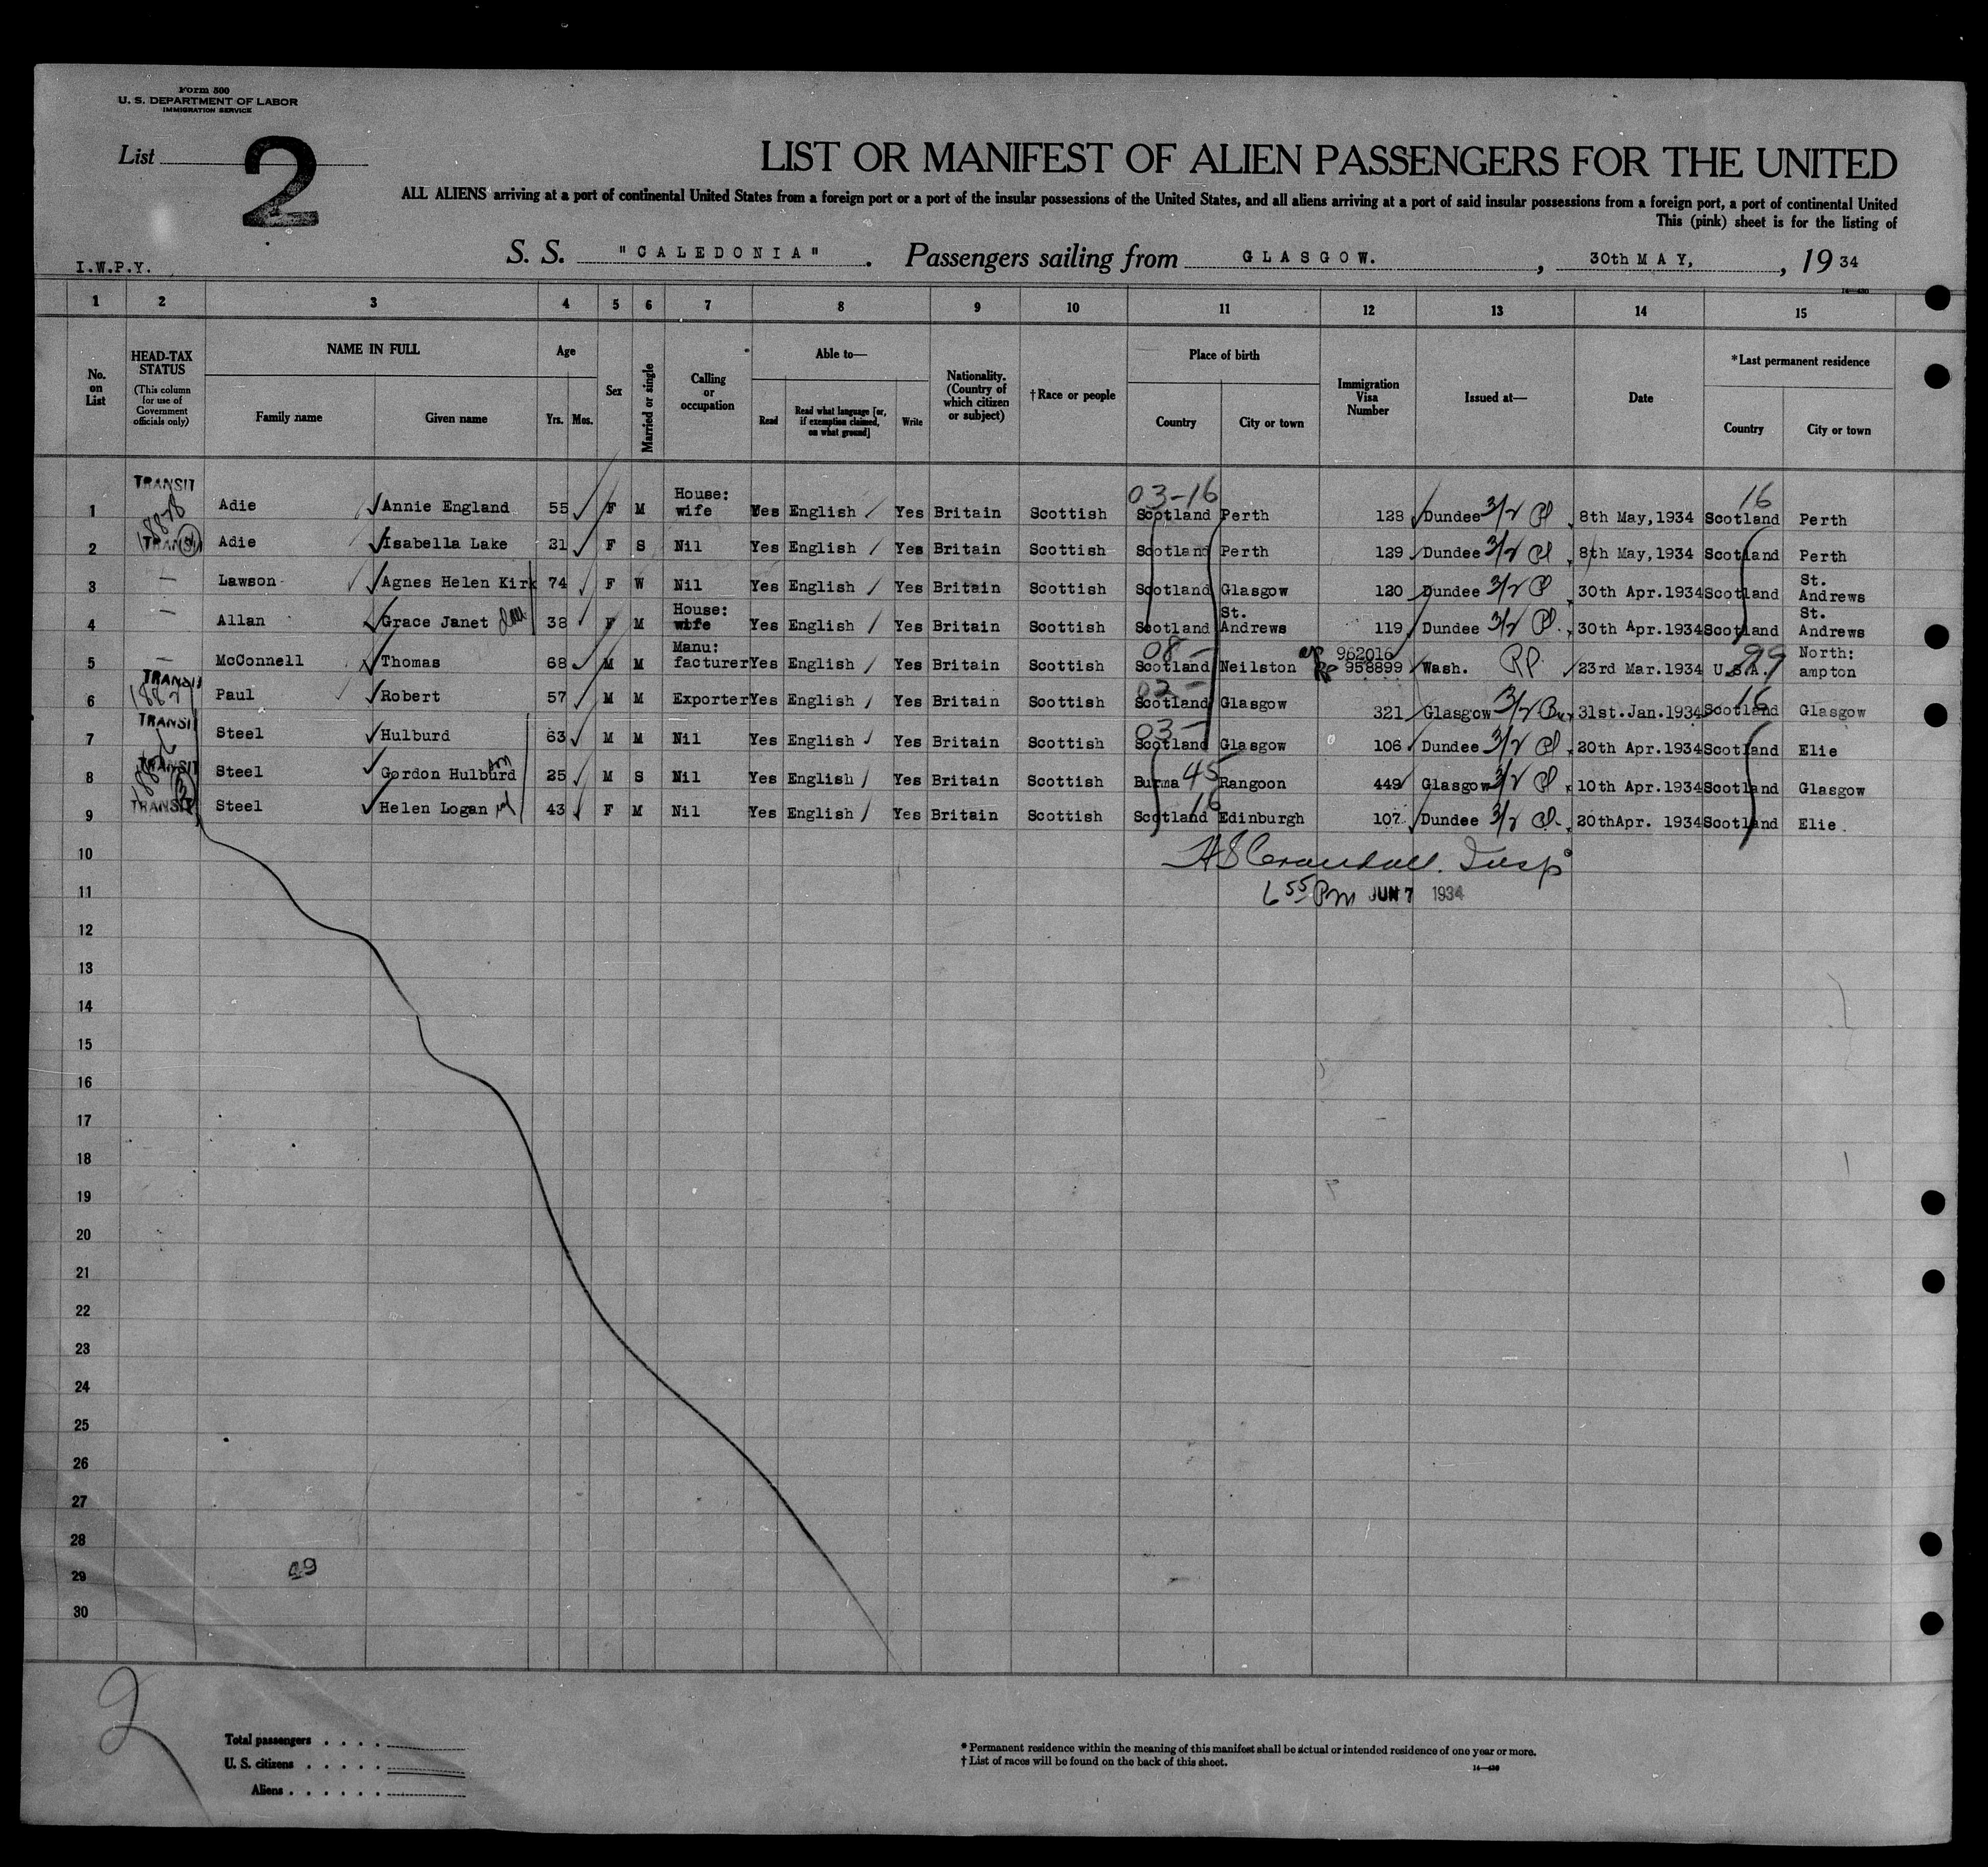 Form 500
U. S. DEPARTMENT OF LABOR
IMMIGRATION SERVICE
List 2
LIST OR MANIFEST OF ALIEN PASSENGERS FOR THE UNITED
ALL ALIENS arriving at a port of continental United States from a foreign port or a port of the insular possessions of the United States, and all aliens arriving at a port of said insular possessions from a foreign port, a port of continental United
This (pink) sheet is for the listing of
I.W.P.Y.
S. S. "CALEDONIA". Passengers sailing from GLASGOW. , 30th MAY, , 19 34
1 2 3 4 5 6 7 8 9 10 11 12 13 14 15
No. on List
HEAD-TAX STATUS (This column for use of Government officials only)
NAME IN FULL
Family name Given name
Age
Yrs. Mos.
Sex
Married or single
Calling or occupation
Able to—
Read Read what language [or, if exemption claimed, on what ground] Write
Nationality. (Country of which citizen or subject)
†Race or people
Place of birth
Country City or town
Immigration Visa Number
Issued at—
Date
*Last permanent residence
Country City or town
03-16 16
1 TRANSIT Adie Annie England 55 F M House: wife Yes English Yes Britain Scottish Scotland Perth 128 Dundee 3/2 8th May,1934 Scotland Perth
2 TRANSIT Adie Isabella Lake 21 F S Nil Yes English Yes Britain Scottish Scotland Perth 129 Dundee 3/2 8th May,1934 Scotland Perth
3 — Lawson Agnes Helen Kirk 74 F W Nil Yes English Yes Britain Scottish Scotland Glasgow 120 Dundee 3/2 30th Apr.1934 Scotland St. Andrews
4 — Allan Grace Janet 38 F M House: wife Yes English Yes Britain Scottish Scotland St. Andrews 119 Dundee 3/2 30th Apr.1934 Scotland St. Andrews
5 — McConnell Thomas 68 M M Manu: facturer Yes English Yes Britain Scottish 08- Scotland Neilston 962016 RP 958899 Wash. RP. 23rd Mar.1934 U.S.A. 99 North: ampton
6 TRANSIT Paul Robert 57 M M Exporter Yes English Yes Britain Scottish Scotland Glasgow 321 Glasgow 3/2 31st.Jan.1934 Scotland 16 Glasgow
7 TRANSIT Steel Hulburd 63 M M Nil Yes English Yes Britain Scottish 03- Scotland Glasgow 106 Dundee 3/2 20th Apr.1934 Scotland Elie
8 TRANSIT Steel Gordon Hulburd son 25 M S Nil Yes English Yes Britain Scottish Burma 45 Rangoon 449 Glasgow 3/2 10th Apr.1934 Scotland Glasgow
9 TRANSIT Steel Helen Logan wf 43 F M Nil Yes English Yes Britain Scottish Scotland 16 Edinburgh 107 Dundee 3/2 20thApr. 1934 Scotland Elie.
10
11 6 55 Pm JUN 7 1934
12
13
14
15
16
17
18
19
20
21
22
23
24
25
26
27
28
29 49
30
2
Total passengers . . . .
U. S. citizens . . . . .
Aliens . . . . . .
* Permanent residence within the meaning of this manifest shall be actual or intended residence of one year or more.
† List of races will be found on the back of this sheet.
14—430